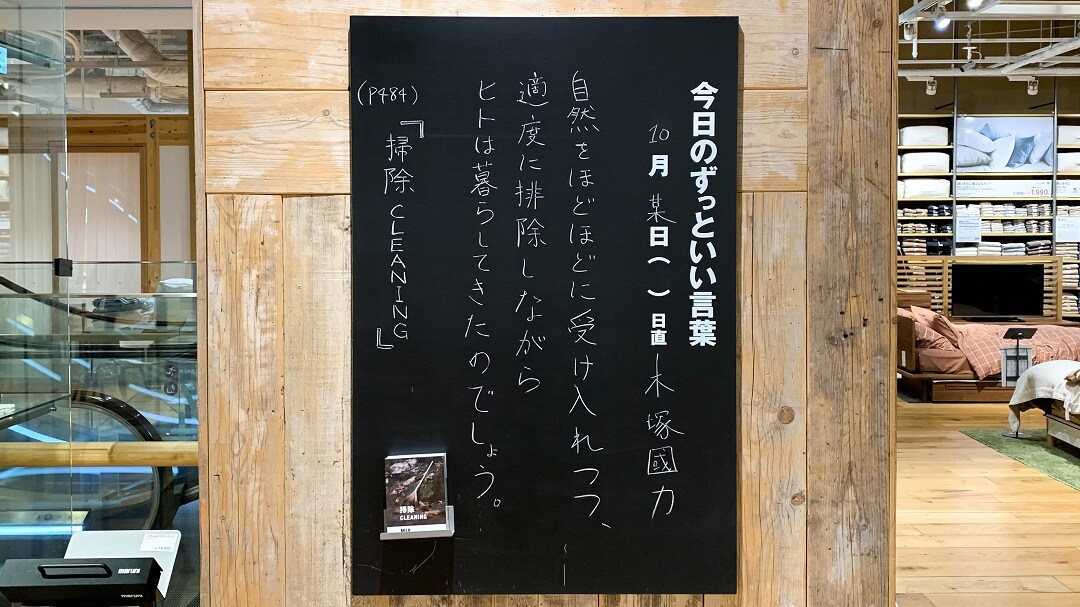 今日のずっといい言葉
10月某日( )日直 木塚國力
自然をほどほどに受け入れつつ、
適度に排除しながら
ヒトは暮らしてきたのでしょう。
『掃除 CLEANING』
(P484)
掃除
CLEANING
MUJI
maruni
1,990